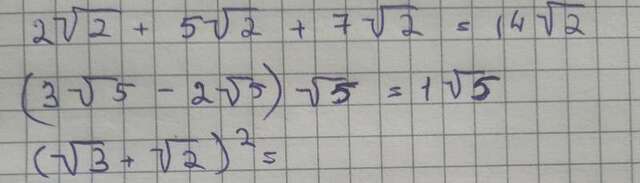 2√2 + 5√2 + 7√2 = 14√2
(3√5 - 2√5) √5 = 1√5
(√3 + √2)² =